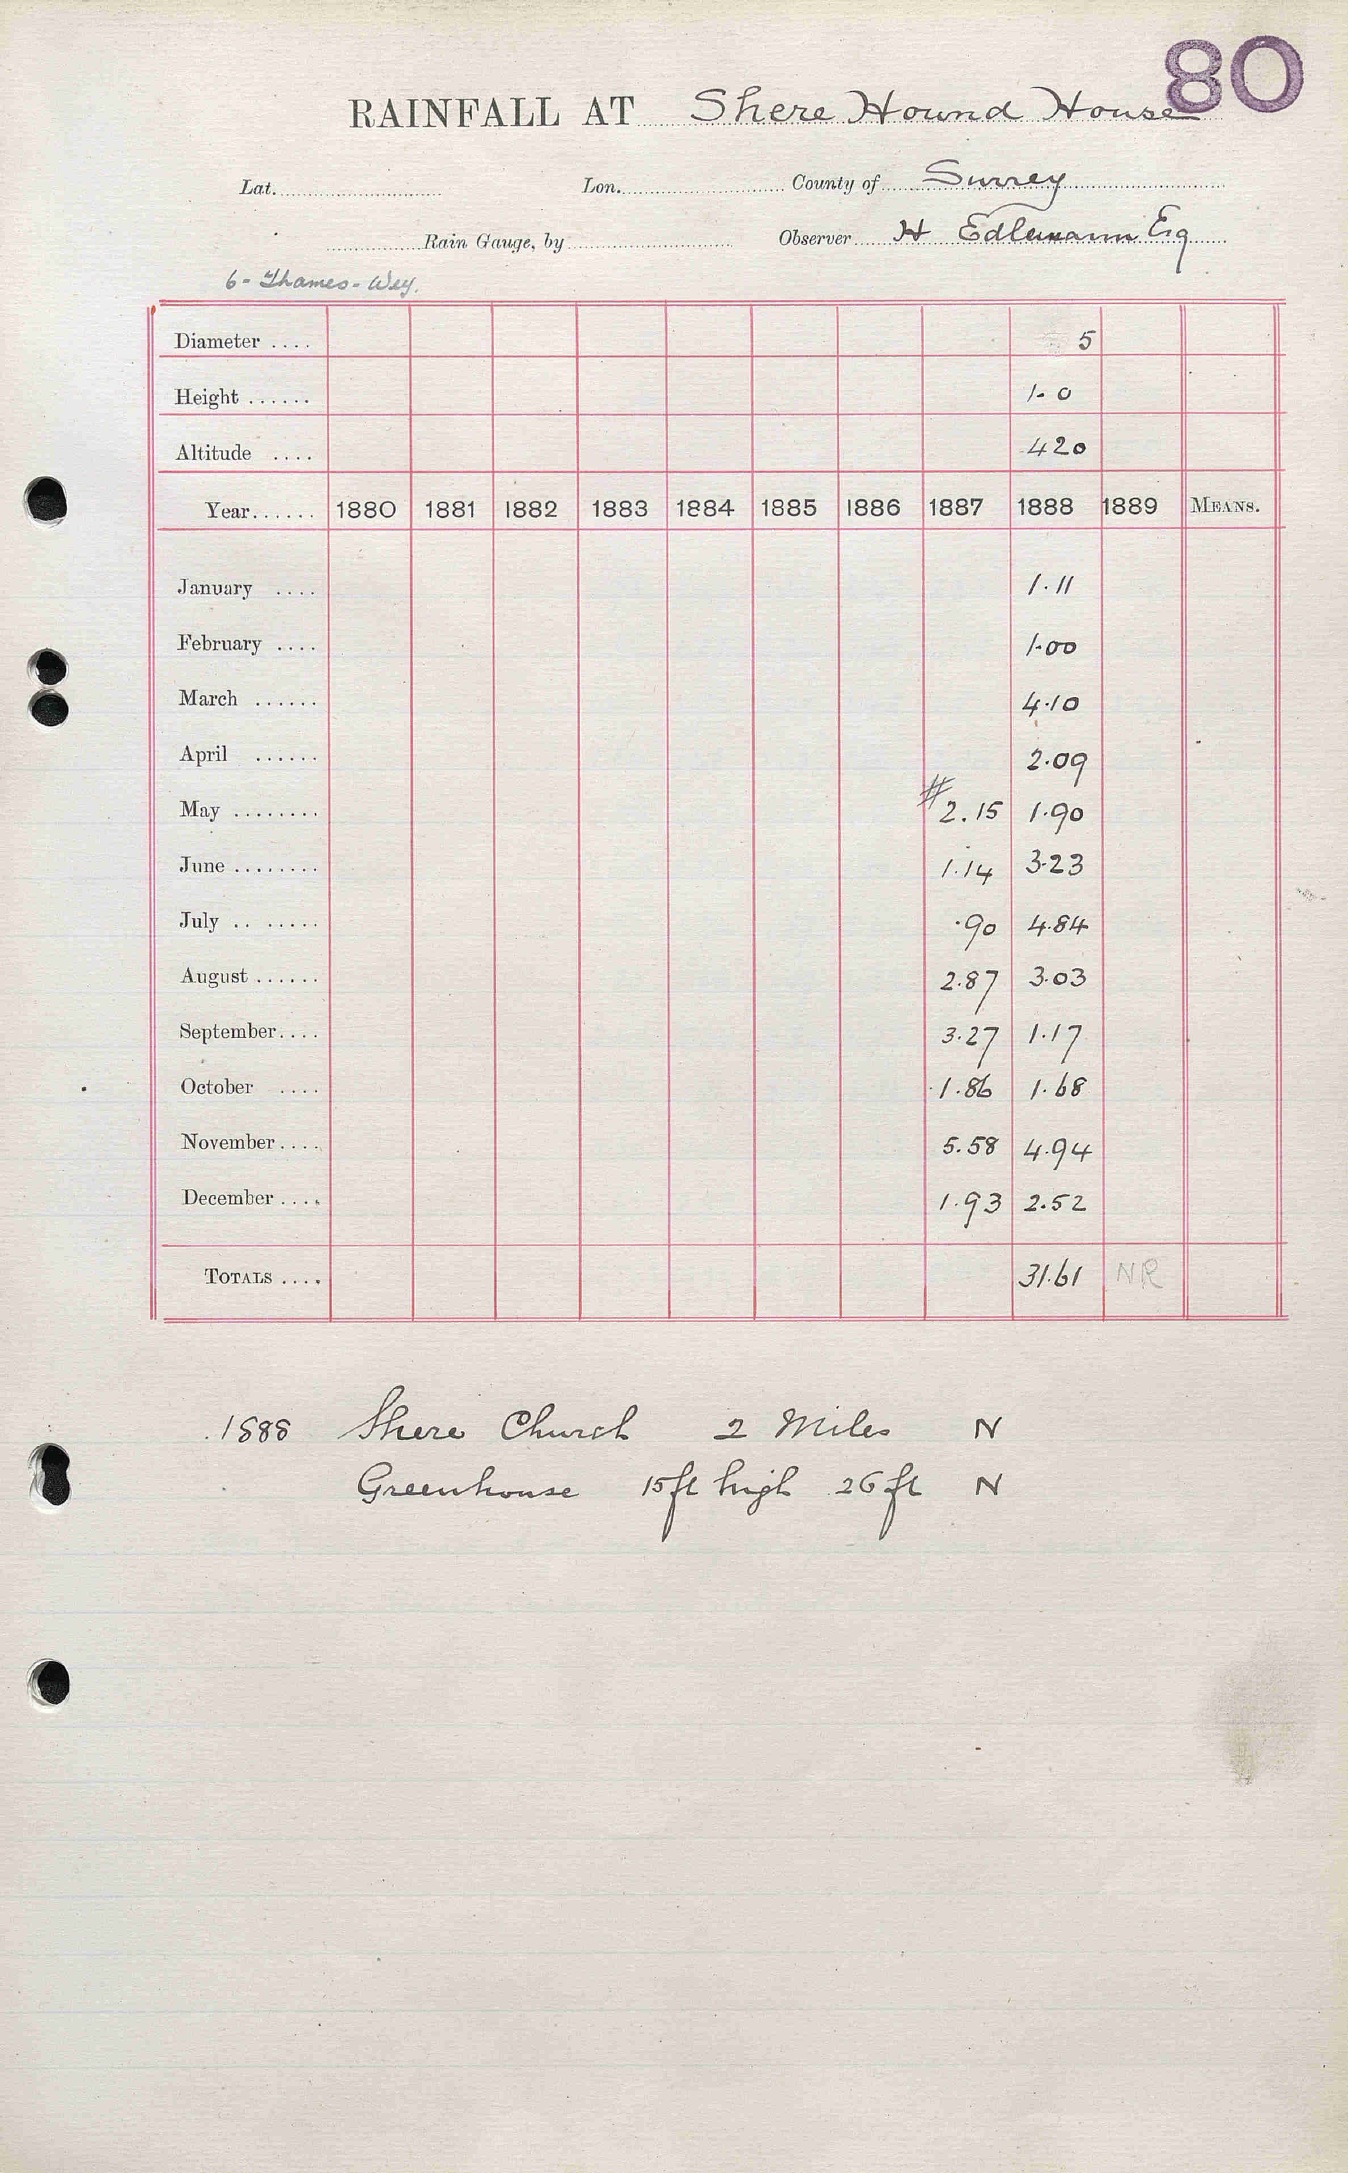 80
RAINFALL AT Shere Hound House
Lat. Lon. County of Surrey
Rain Gauge, by Observer H Edlmann Esq
6 - Thames - Wey.
Diameter .... 5
Height ...... 1-0
Altitude .... 420
Year...... 1880 1881 1882 1883 1884 1885 1886 1887 1888 1889 MEANS.
January .... 1.11
February .... 1.00
March ...... 4.10
April ...... 2.09
May ........ # 2.15 1.90
June ........ 1.14 3.23
July .. ..... .90 4.84
August ...... 2.87 3.03
September.... 3.27 1.17
October .... 1.86 1.68
November.... 5.58 4.94
December .... 1.93 2.52
TOTALS .... 31.61 NR
1888 Shere Church 2 Miles N
Greenhouse 15ft high 26ft N